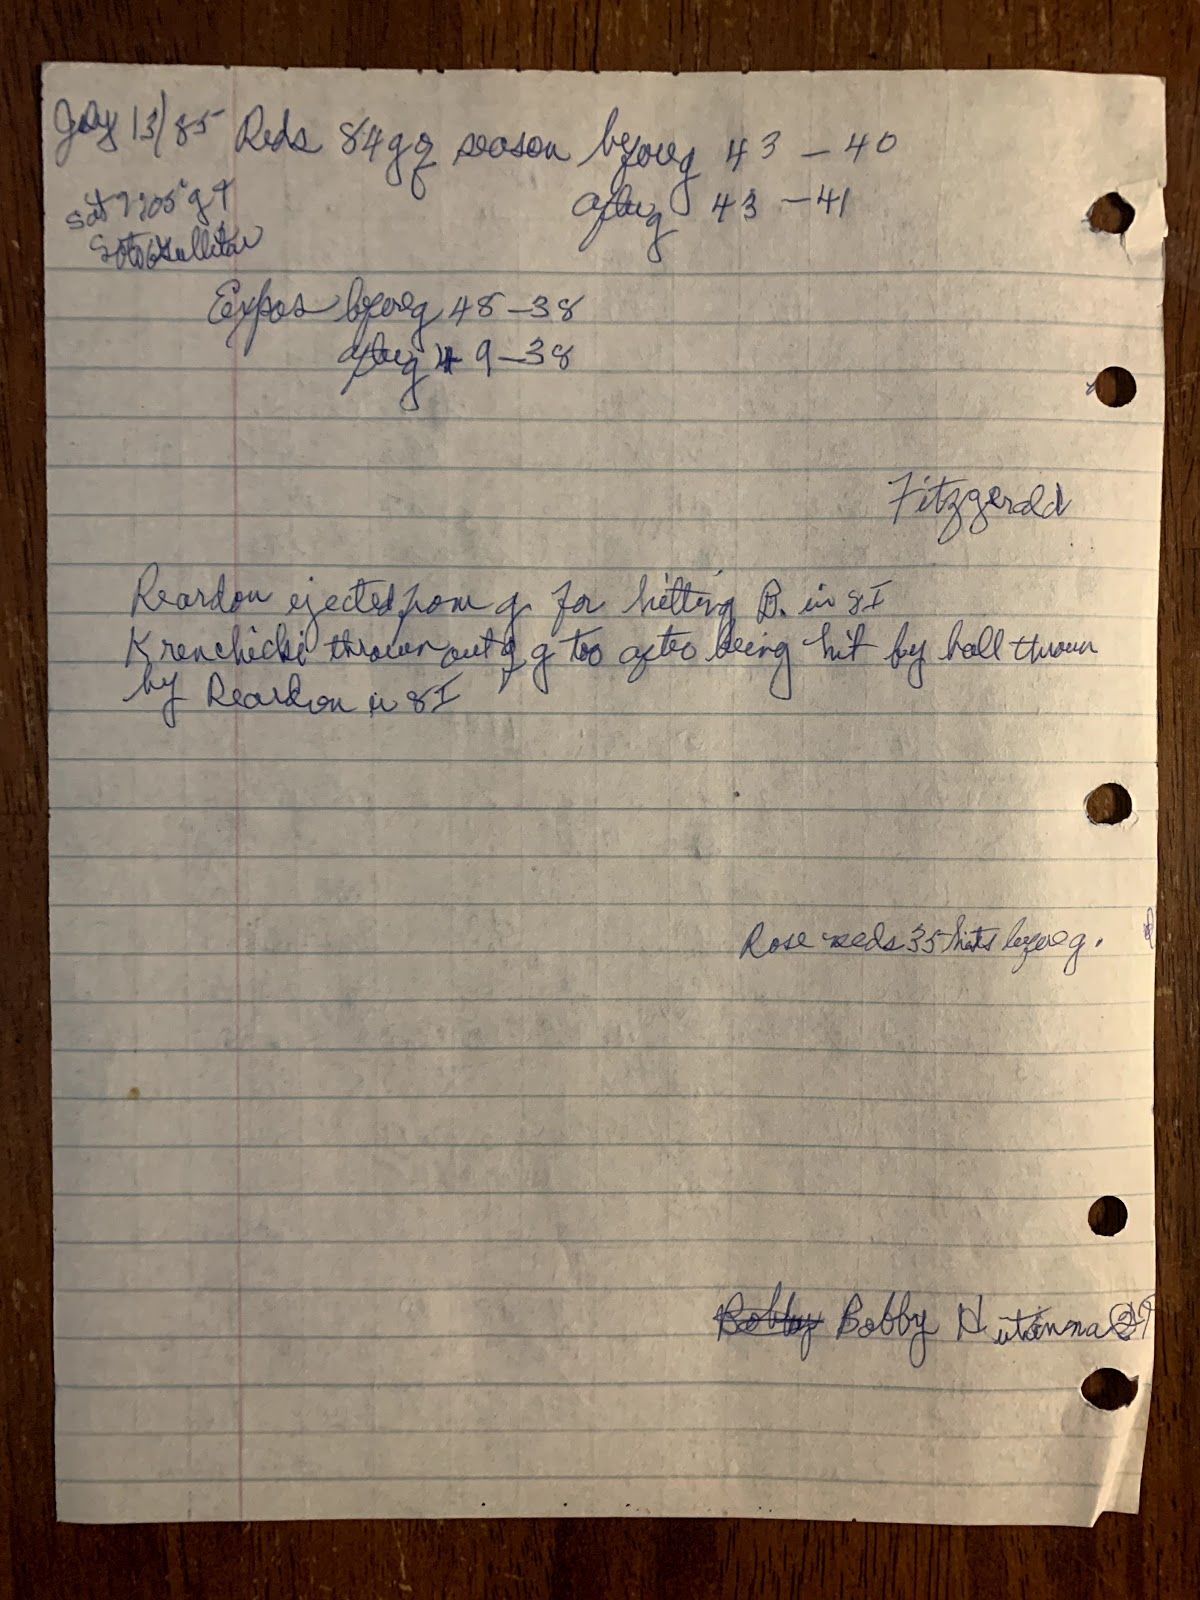 July 13/85 Reds 84 g of season before g 43 - 40
after g 43 - 41
Sat 7:05 g
Soto Gullickson
Expos before g 48 - 38
after g 49 - 38
Fitzgerald
Reardon ejected from g for hitting B. in 8I
Krenchicki thrown out of g too after being hit by ball thrown
by Reardon in 8I
Rose needs 35 hits before g.
Bobby Bobby